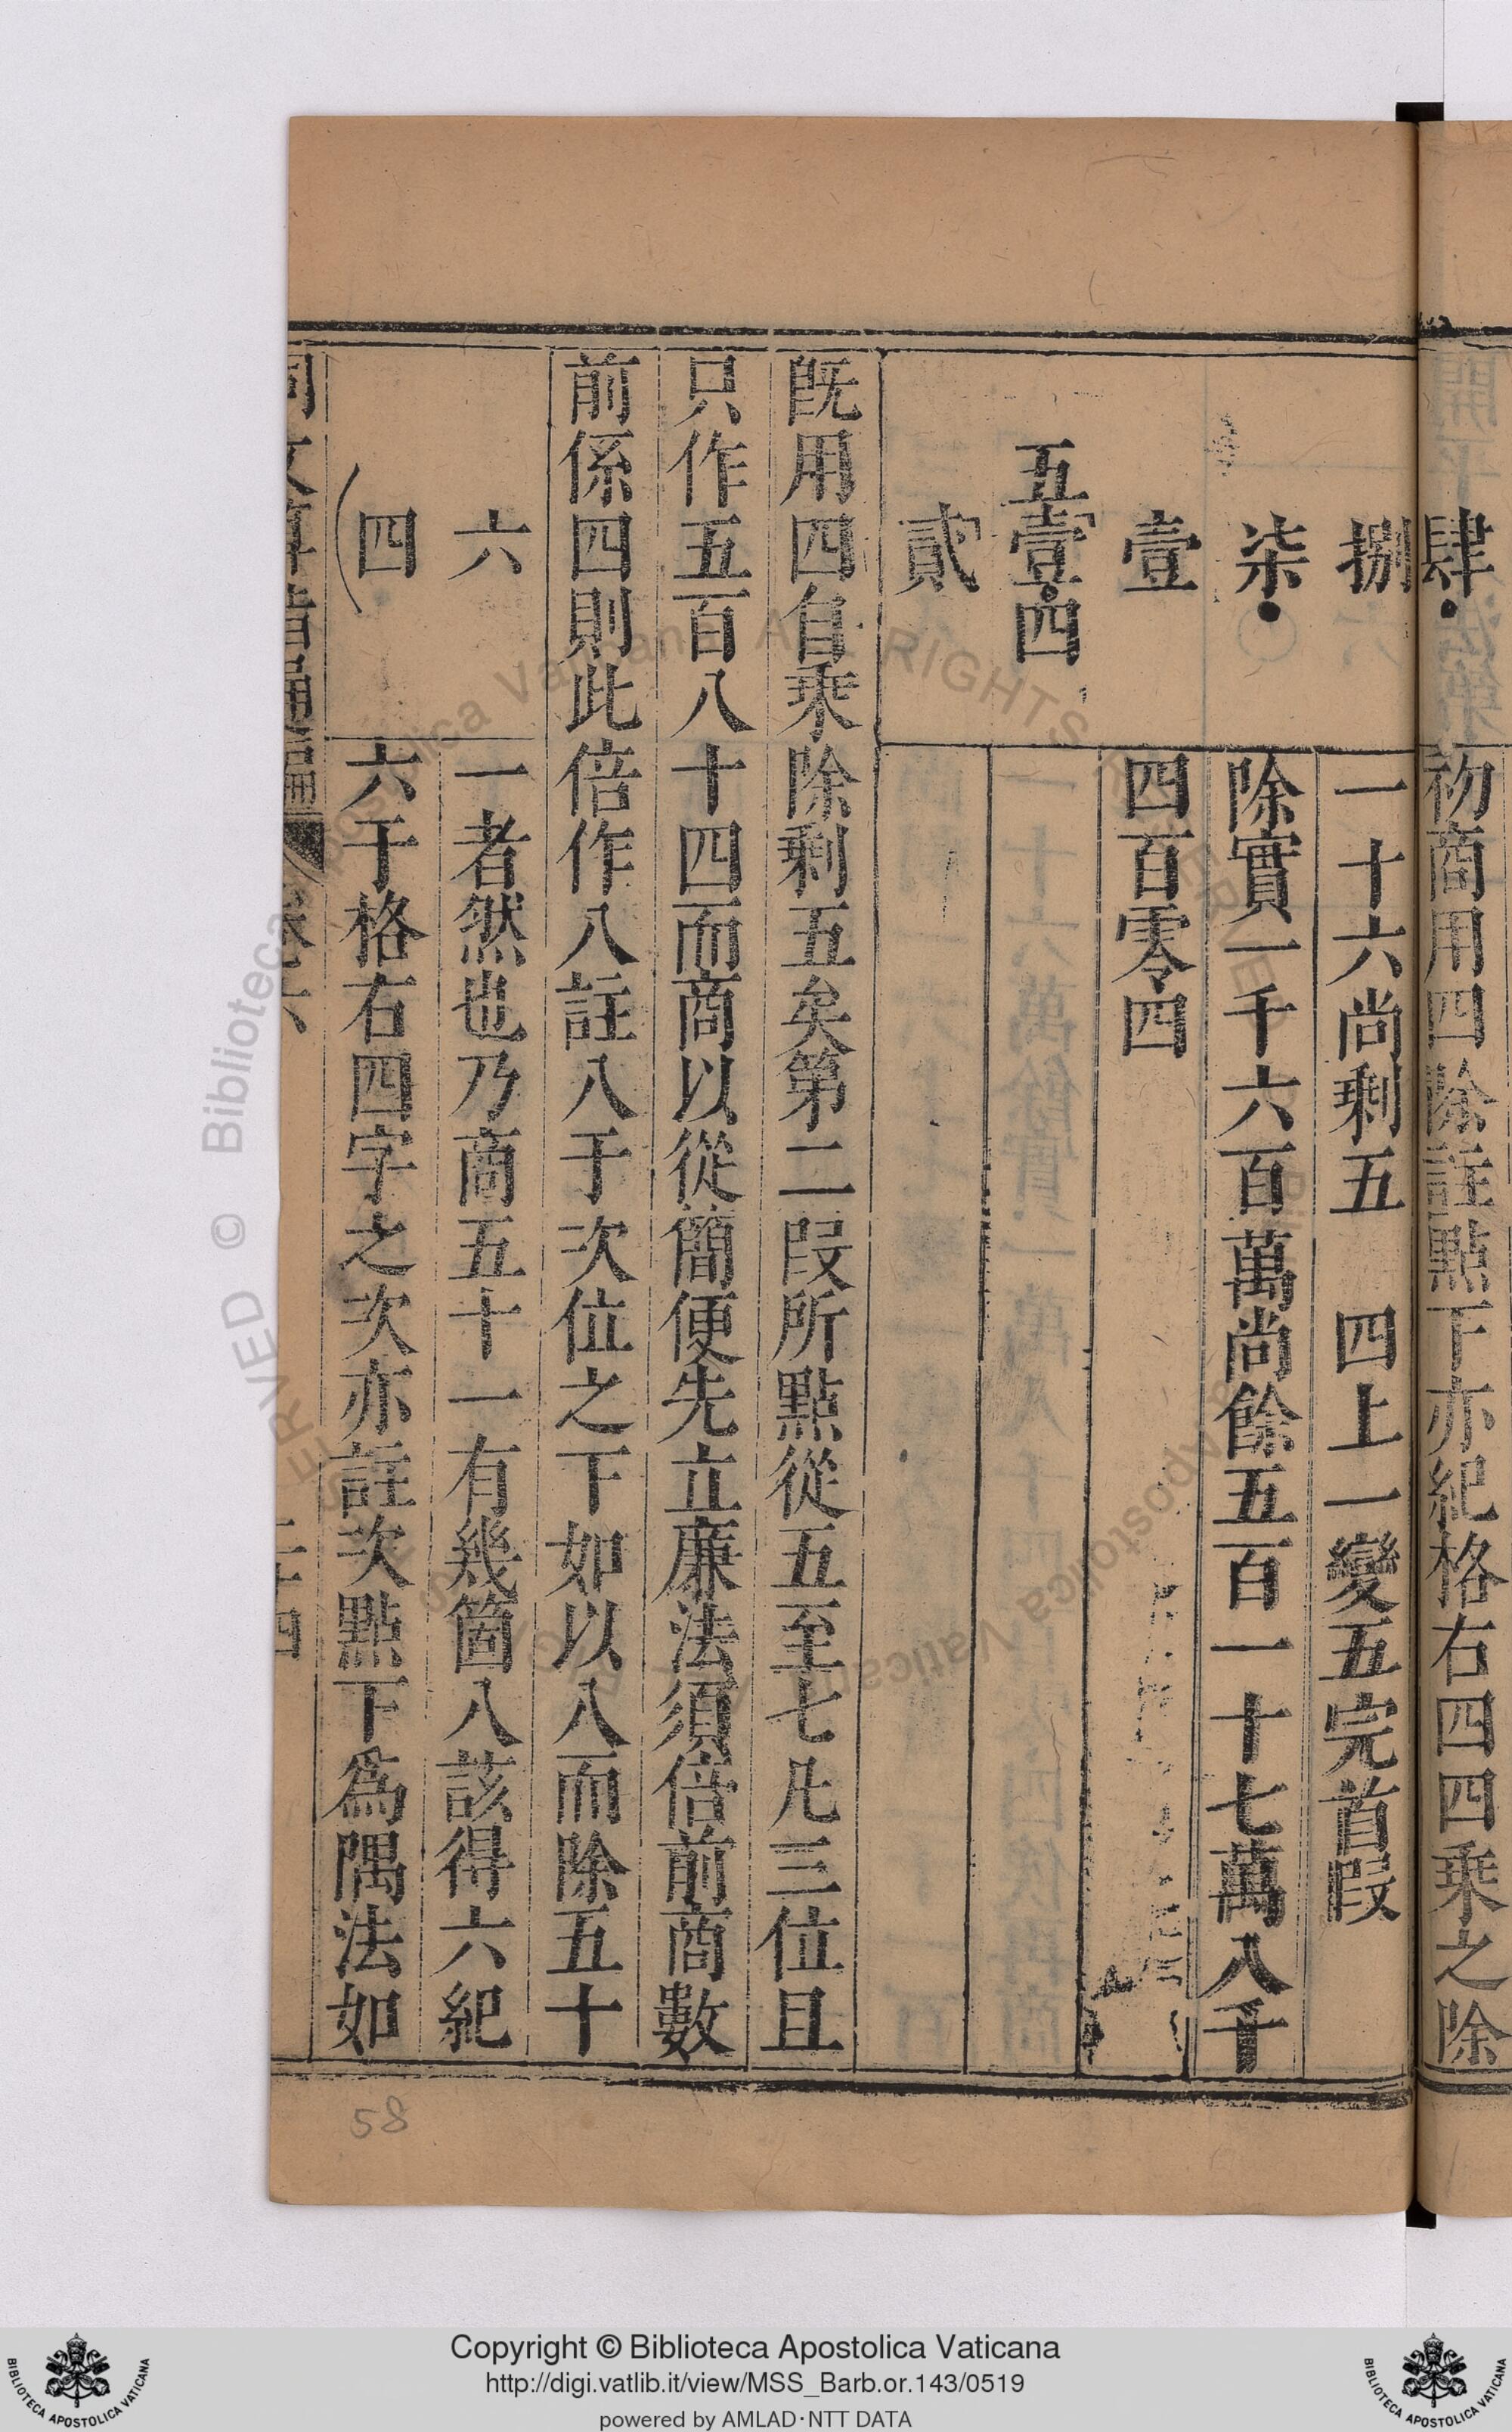 肆 初商用四除註點下亦紀格右四四乗之除
捌 一十六尚剩五 四上一變五完首叚
柒 除實一千六百萬尚餘五百一十七萬八千
壹 四百零四
五壹四
貳
既用四自乘除剩五矣第二叚所點從五至七凡三位且
只作五百八十四而商以從簡便先立廉法須倍前商數
前係四則此倍作八註八于次位之下如以八而除五十
六 一者然也乃商五十一有幾箇八該得六紀
四 六于格右四字之次亦註次點下為隅法如
同文算指通編 卷六 二十四
58
Copyright © Biblioteca Apostolica Vaticana
http://digi.vatlib.it/view/MSS_Barb.or.143/0519
powered by AMLAD·NTT DATA
BIBLIOTECA APOSTOLICA VATICANA
BIBLIOTECA APOSTOLICA VATICANA